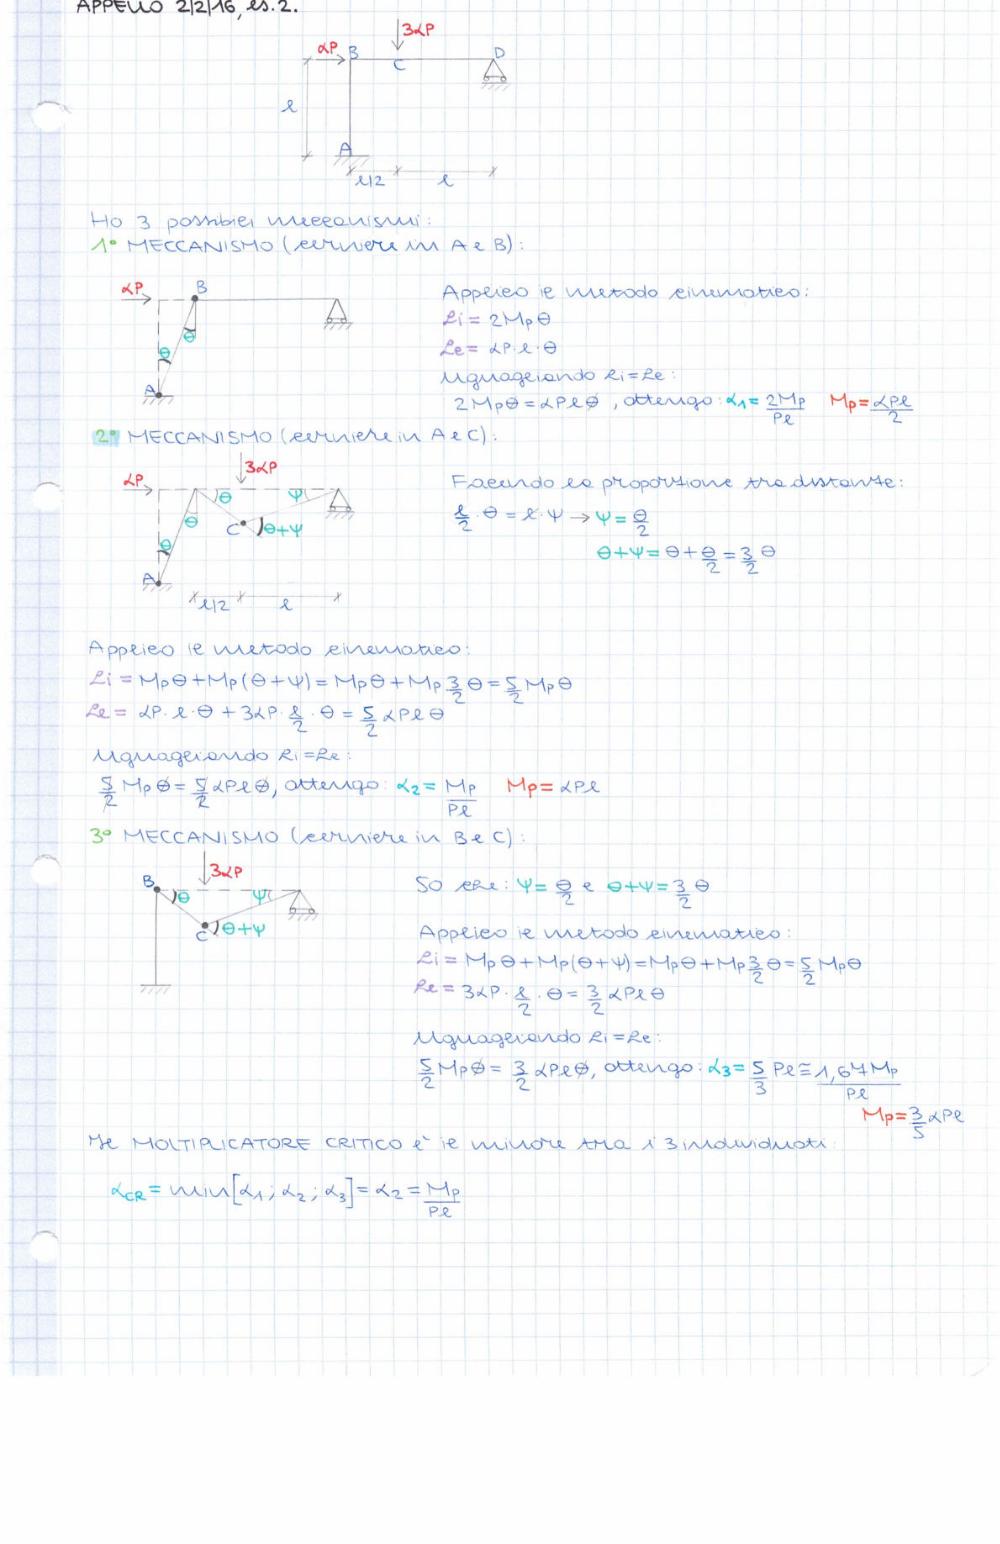 APPELLO 2/2/16, es.2.
3αP
αP B C D
l
A
l/2 l
Ho 3 possibili meccanismi:
1° MECCANISMO (cerniere in A e B):
αP B
θ θ
A
Applico il metodo cinematico:
Li = 2Mpθ
Le = αP·l·θ
Uguagliando Li=Le:
2Mpθ = αPlθ, ottengo: α1 = 2Mp/Pl Mp = αPl/2
2° MECCANISMO (cerniere in A e C):
αP 3αP
θ ψ
θ C θ+ψ
θ
A
l/2 l
Facendo la proporzione tra distanze:
l/2·θ = l·ψ → ψ = θ/2
θ+ψ = θ+θ/2 = 3/2 θ
Applico il metodo cinematico:
Li = Mpθ+Mp(θ+ψ) = Mpθ+Mp 3/2 θ = 5/2 Mpθ
Le = αP·l·θ + 3αP·l/2·θ = 5/2 αPlθ
Uguagliando Li=Le:
5/2 Mpθ = 5/2 αPlθ, ottengo: α2 = Mp/Pl Mp = αPl
3° MECCANISMO (cerniere in B e C):
3αP
B θ ψ
C θ+ψ
So che: ψ = θ/2 e θ+ψ = 3/2 θ
Applico il metodo cinematico:
Li = Mpθ+Mp(θ+ψ) = Mpθ+Mp 3/2 θ = 5/2 Mpθ
Le = 3αP·l/2·θ = 3/2 αPlθ
Uguagliando Li=Le:
5/2 Mpθ = 3/2 αPlθ, ottengo: α3 = 5/3 Pl ≅ 1,67Mp/Pl
Mp = 3/5 αPl
Il MOLTIPLICATORE CRITICO è il minore tra i 3 individuati:
αCR = min[α1; α2; α3] = α2 = Mp/Pl